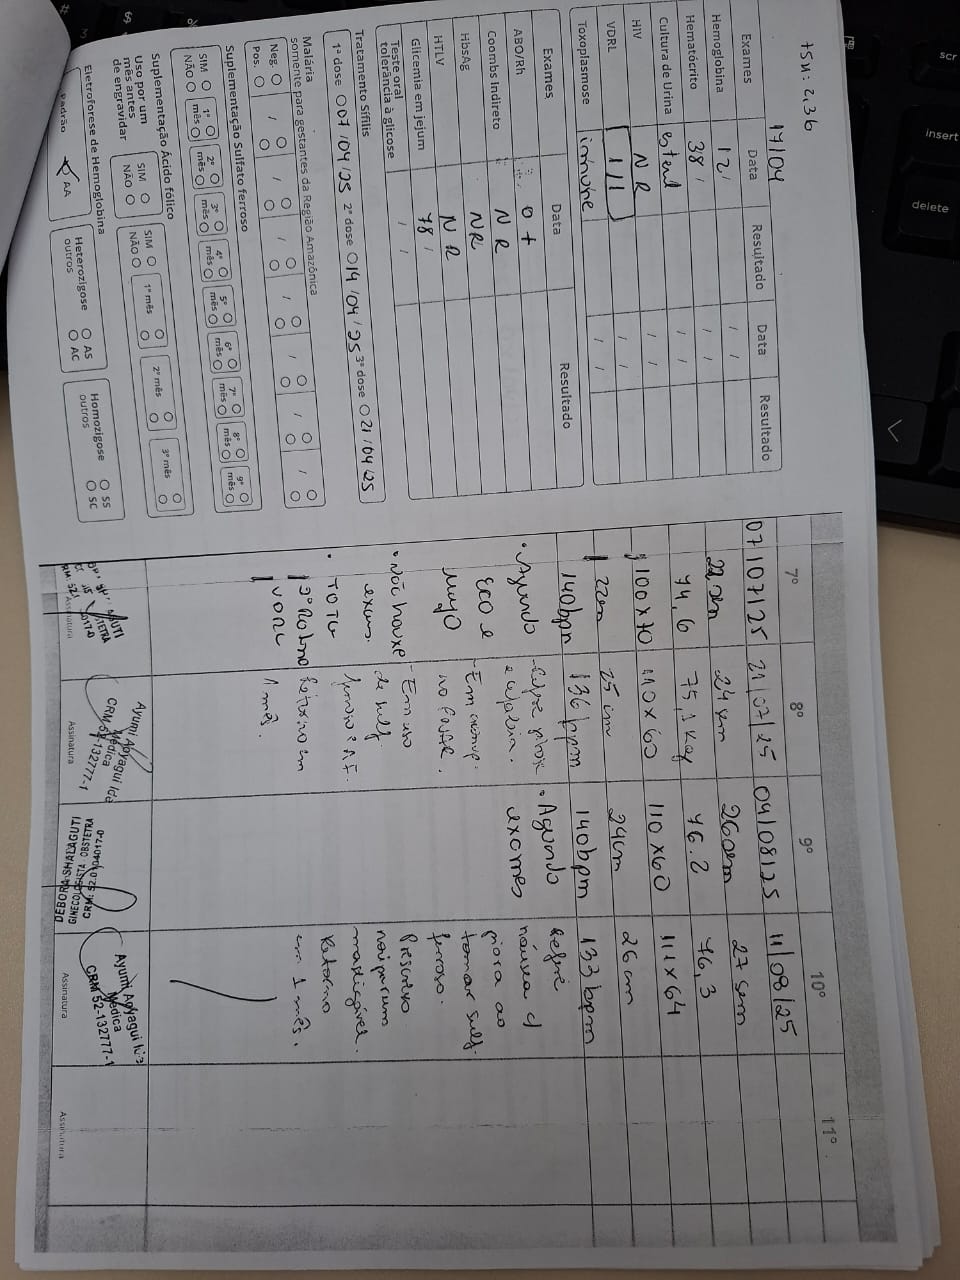 TSH: 2,36
17/04
Exames Data Resultado Data Resultado
Hemoglobina 12 / /
Hematócrito 38 / /
Cultura de Urina / /
HIV NR / /
VDRL 1/1 / /
Toxoplasmose imune / /
Exames Data Resultado
ABO/Rh O +
Coombs Indireto NR
HbsAg NR
HTLV NR
Glicemia em jejum 78
Teste oral
tolerância à glicose / /
Tratamento Sífilis
1ª dose 07/04/25 2ª dose 14/04/25 3ª dose 21/04/25
Malária
somente para gestantes da Região Amazônica
Neg. / / / / / /
Pos.
Suplementação Sulfato ferroso
SIM 1º mês 2º mês 3º mês 4º mês 5º mês 6º mês 7º mês 8º mês 9º mês
NÃO
Suplementação Ácido fólico
Uso por um
mês antes
de engravidar
SIM
NÃO
SIM
NÃO
1º mês 2º mês 3º mês
Eletroforese de Hemoglobina
Padrão
AA
Heterozigose
outros
AS
AC
Homozigose
outros
SS
SC
7º 8º 9º 10º 11º
07/07/25 21/07/25 04/08/25 11/08/25
22sem 24 sem 26sem 27 sem
74,6 75,1 kg 76.2 76,3
100x70 110x60 110x60 111x64
22cm 25 cm 24cm 26 cm
140bpm 136 bpm 140bpm 133 bpm
• Aguardo
Eco e
• Não trouxe
exames.
• TOTG
2ª Rotina
VDRL
- Em uso
de sulf
Retorno em
1 mês.
• Aguardo
exames
Refere
náusea c/
piora ao
tomar sulf.
ferroso.
Prescrevo
mastigável.
Retorno
em 1 mês.
Assinatura
Ayumi Aoyagui
Médica
CRM 52-132777-1
Assinatura
DEBORA SMALAGUTI
GINECOLOGISTA OBSTETRA
Assinatura
Ayumi Aoyagui
Médica
CRM 52-132777-1
Assinatura
Assinatura
scr
insert
delete